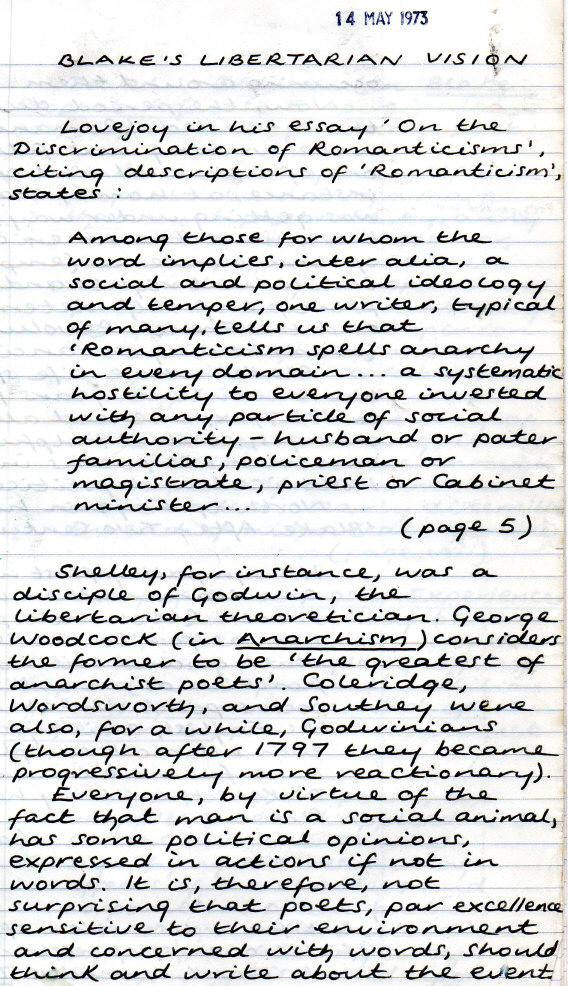 14 MAY 1973
BLAKE'S LIBERTARIAN VISION
Lovejoy in his essay 'On the
Discrimination of Romanticisms',
citing descriptions of 'Romanticism',
states :
Among those for whom the
word implies, inter alia, a
social and political ideology
and temper, one writer, typical
of many, tells us that
'Romanticism spells anarchy
in every domain... a systematic
hostility to everyone invested
with any particle of social
authority - husband or pater
familias, policeman or
magistrate, priest or Cabinet
minister...
(page 5)
Shelley, for instance, was a
disciple of Godwin, the
libertarian theoretician. George
Woodcock (in Anarchism) considers
the former to be 'the greatest of
anarchist poets'. Coleridge,
Wordsworth, and Southey were
also, for a while, Godwinians
(though after 1797 they became
progressively more reactionary).
Everyone, by virtue of the
fact that man is a social animal,
has some political opinions,
expressed in actions if not in
words. It is, therefore, not
surprising that poets, par excellence
sensitive to their environment
and concerned with words, should
think and write about the event